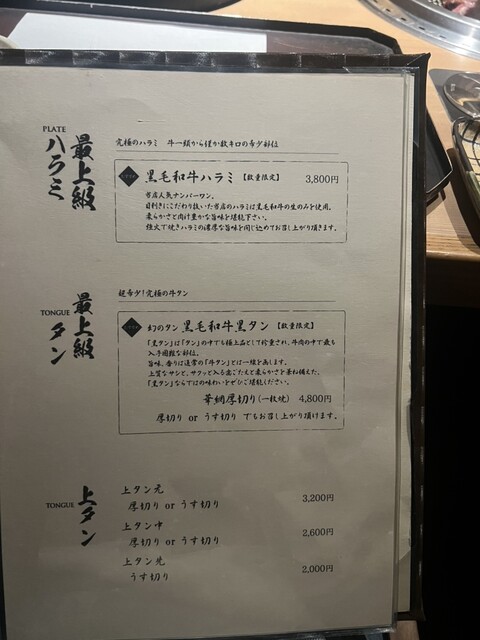 PLATE
最上級
ハラミ
究極のハラミ 牛一頭から僅か数キロの希少部位
黒毛和牛ハラミ【数量限定】 3,800円
当店人気ナンバーワン。
目利きにこだわり抜いた当店のハラミは黒毛和牛の生のみを使用。
柔らかさと肉汁豊かな旨味を堪能下さい。
強火で焼きハラミの濃厚な旨味を閉じ込めてお召し上がり頂きます。
TONGUE
最上級
タン
超希少!究極の牛タン
幻のタン 黒毛和牛黒タン【数量限定】
「黒タン」は「タン」の中でも極上品として珍重され、牛肉の中で最も
入手困難な部位。
旨味、香りは通常の「牛タン」とは一線を画します。
上質なサシと、サクッと入る歯ごたえと柔らかさを兼ね備えた、
「黒タン」ならではの味わいをぜひご堪能ください。
華網厚切り(一枚焼) 4,800円
厚切り or うす切り でもお召し上がり頂けます。
TONGUE
上タン
上タン元
厚切り or うす切り 3,200円
上タン中
厚切り or うす切り 2,600円
上タン先
うす切り 2,000円